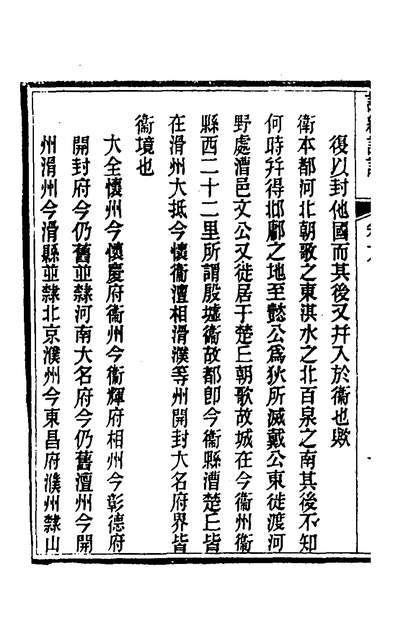 復以封他國而其後又幷入於衞也歟
衛本都河北朝歌之東淇水之北百泉之南其後不知
何時幷得邶鄘之地至懿公爲狄所滅戴公東徙渡河
野處漕邑文公又徙居于楚丘朝歌故城在今衛州衛
縣西二十二里所謂殷墟衛故都卽今衛縣漕楚丘皆
在滑州大抵今懷衛澶相滑濮等州開封大名府界皆
衛境也
大全懷州今懷慶府衛州今衛輝府相州今彰德府
開封府今仍舊並隷河南大名府今仍舊澶州今開
州滑州今滑縣並隷北京濮州今東昌府濮州隷山